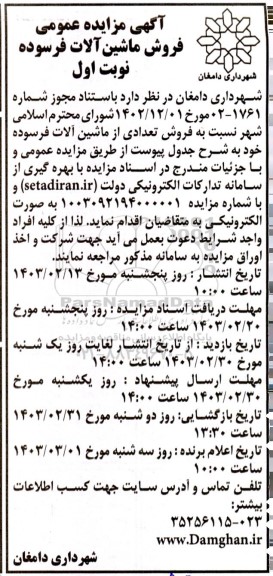 آگهی مزایده عمومی
فروش ماشین‌آلات فرسوده
نوبت اول
شهرداری دامغان
شهرداری دامغان در نظر دارد باستناد مجوز شماره
۰۲-۱۷۶۱مورخ ۱۴۰۲/۱۲/۰۱شورای محترم اسلامی
شهر نسبت به فروش تعدادی از ماشین آلات فرسوده
خود به شرح جدول پیوست از طریق مزایده عمومی و
با جزئیات مندرج در اسناد مزایده با بهره گیری از
سامانه تدارکات الکترونیکی دولت (setadiran.ir) و
با شماره مزایده ۱۰۰۳۰۹۲۱۹۴۰۰۰۰۰۱ به صورت
الکترونیکی به متقاضیان اقدام نماید. لذا از کلیه افراد
واجد شرایط دعوت بعمل می آید جهت شرکت و اخذ
اوراق مزایده به سامانه مذکور مراجعه نمایند.
تاریخ انتشار : روز پنجشنبه مورخ ۱۴۰۳/۰۲/۱۳
ساعت ۱۰:۰۰
مهلت دریافت اسناد مزایده : روز پنجشنبه مورخ
۱۴۰۳/۰۲/۲۰ ساعت ۱۴:۰۰
تاریخ بازدید : از تاریخ انتشار لغایت روز یک شنبه
مورخ ۱۴۰۳/۰۲/۳۰ ساعت ۱۴:۰۰
مهلت ارسال پیشنهاد : روز یکشنبه مورخ
۱۴۰۳/۰۲/۳۰ ساعت ۱۴:۰۰
تاریخ بازگشایی: روز دو شنبه مورخ ۱۴۰۳/۰۲/۳۱
ساعت ۱۳:۳۰
تاریخ اعلام برنده : روز سه شنبه مورخ ۱۴۰۳/۰۳/۰۱
ساعت ۱۰:۰۰
تلفن تماس و آدرس سایت جهت کسب اطلاعات
بیشتر:
۰۲۳-۳۵۲۵۶۱۱۵
www.Damghan.ir
شهرداری دامغان